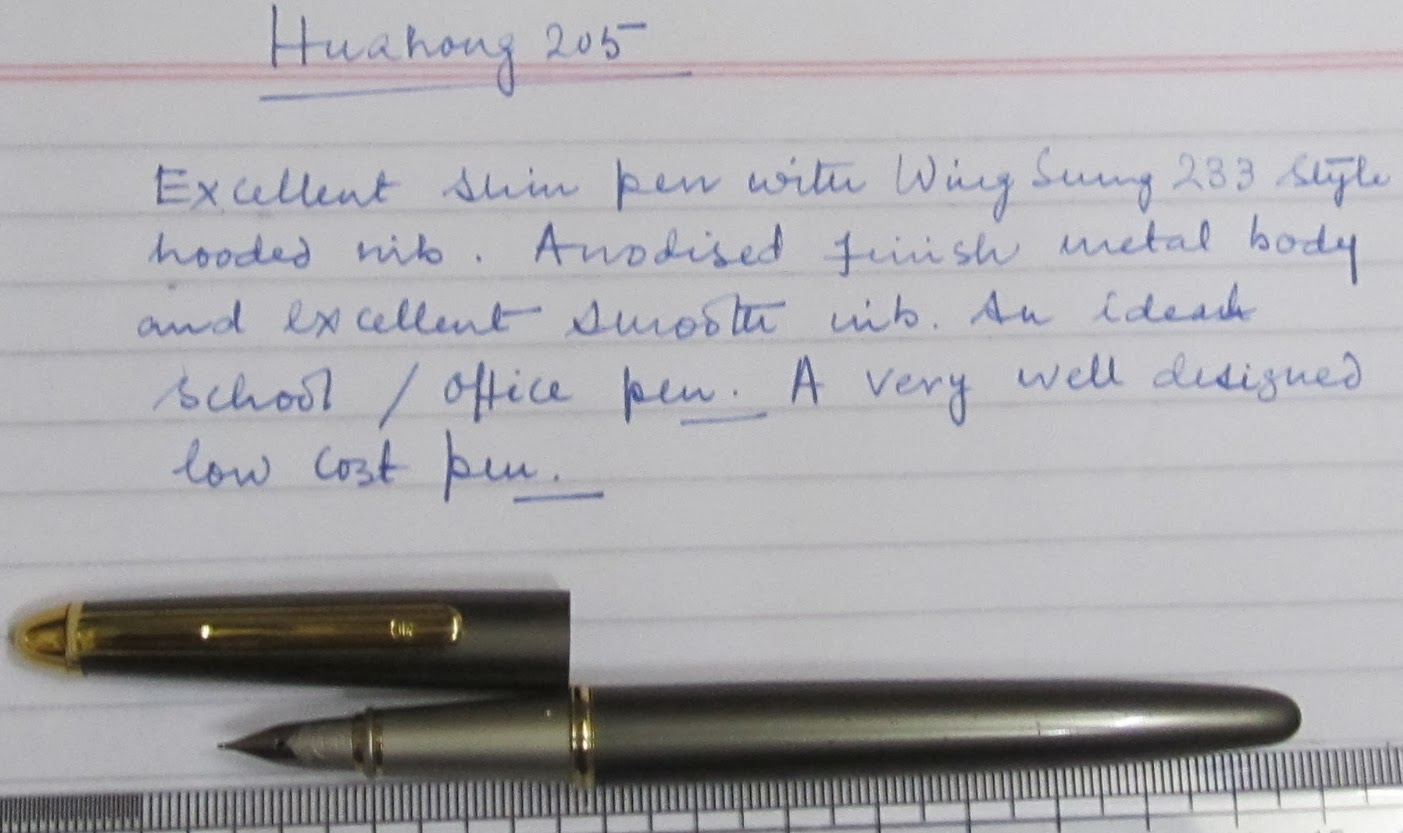 Huahong 205
Excellent slim pen with Wing Sung 233 style
hooded nib. Anodised finish metal body
and excellent smooth nib. An ideal
school / office pen. A very well designed
low cost pen.